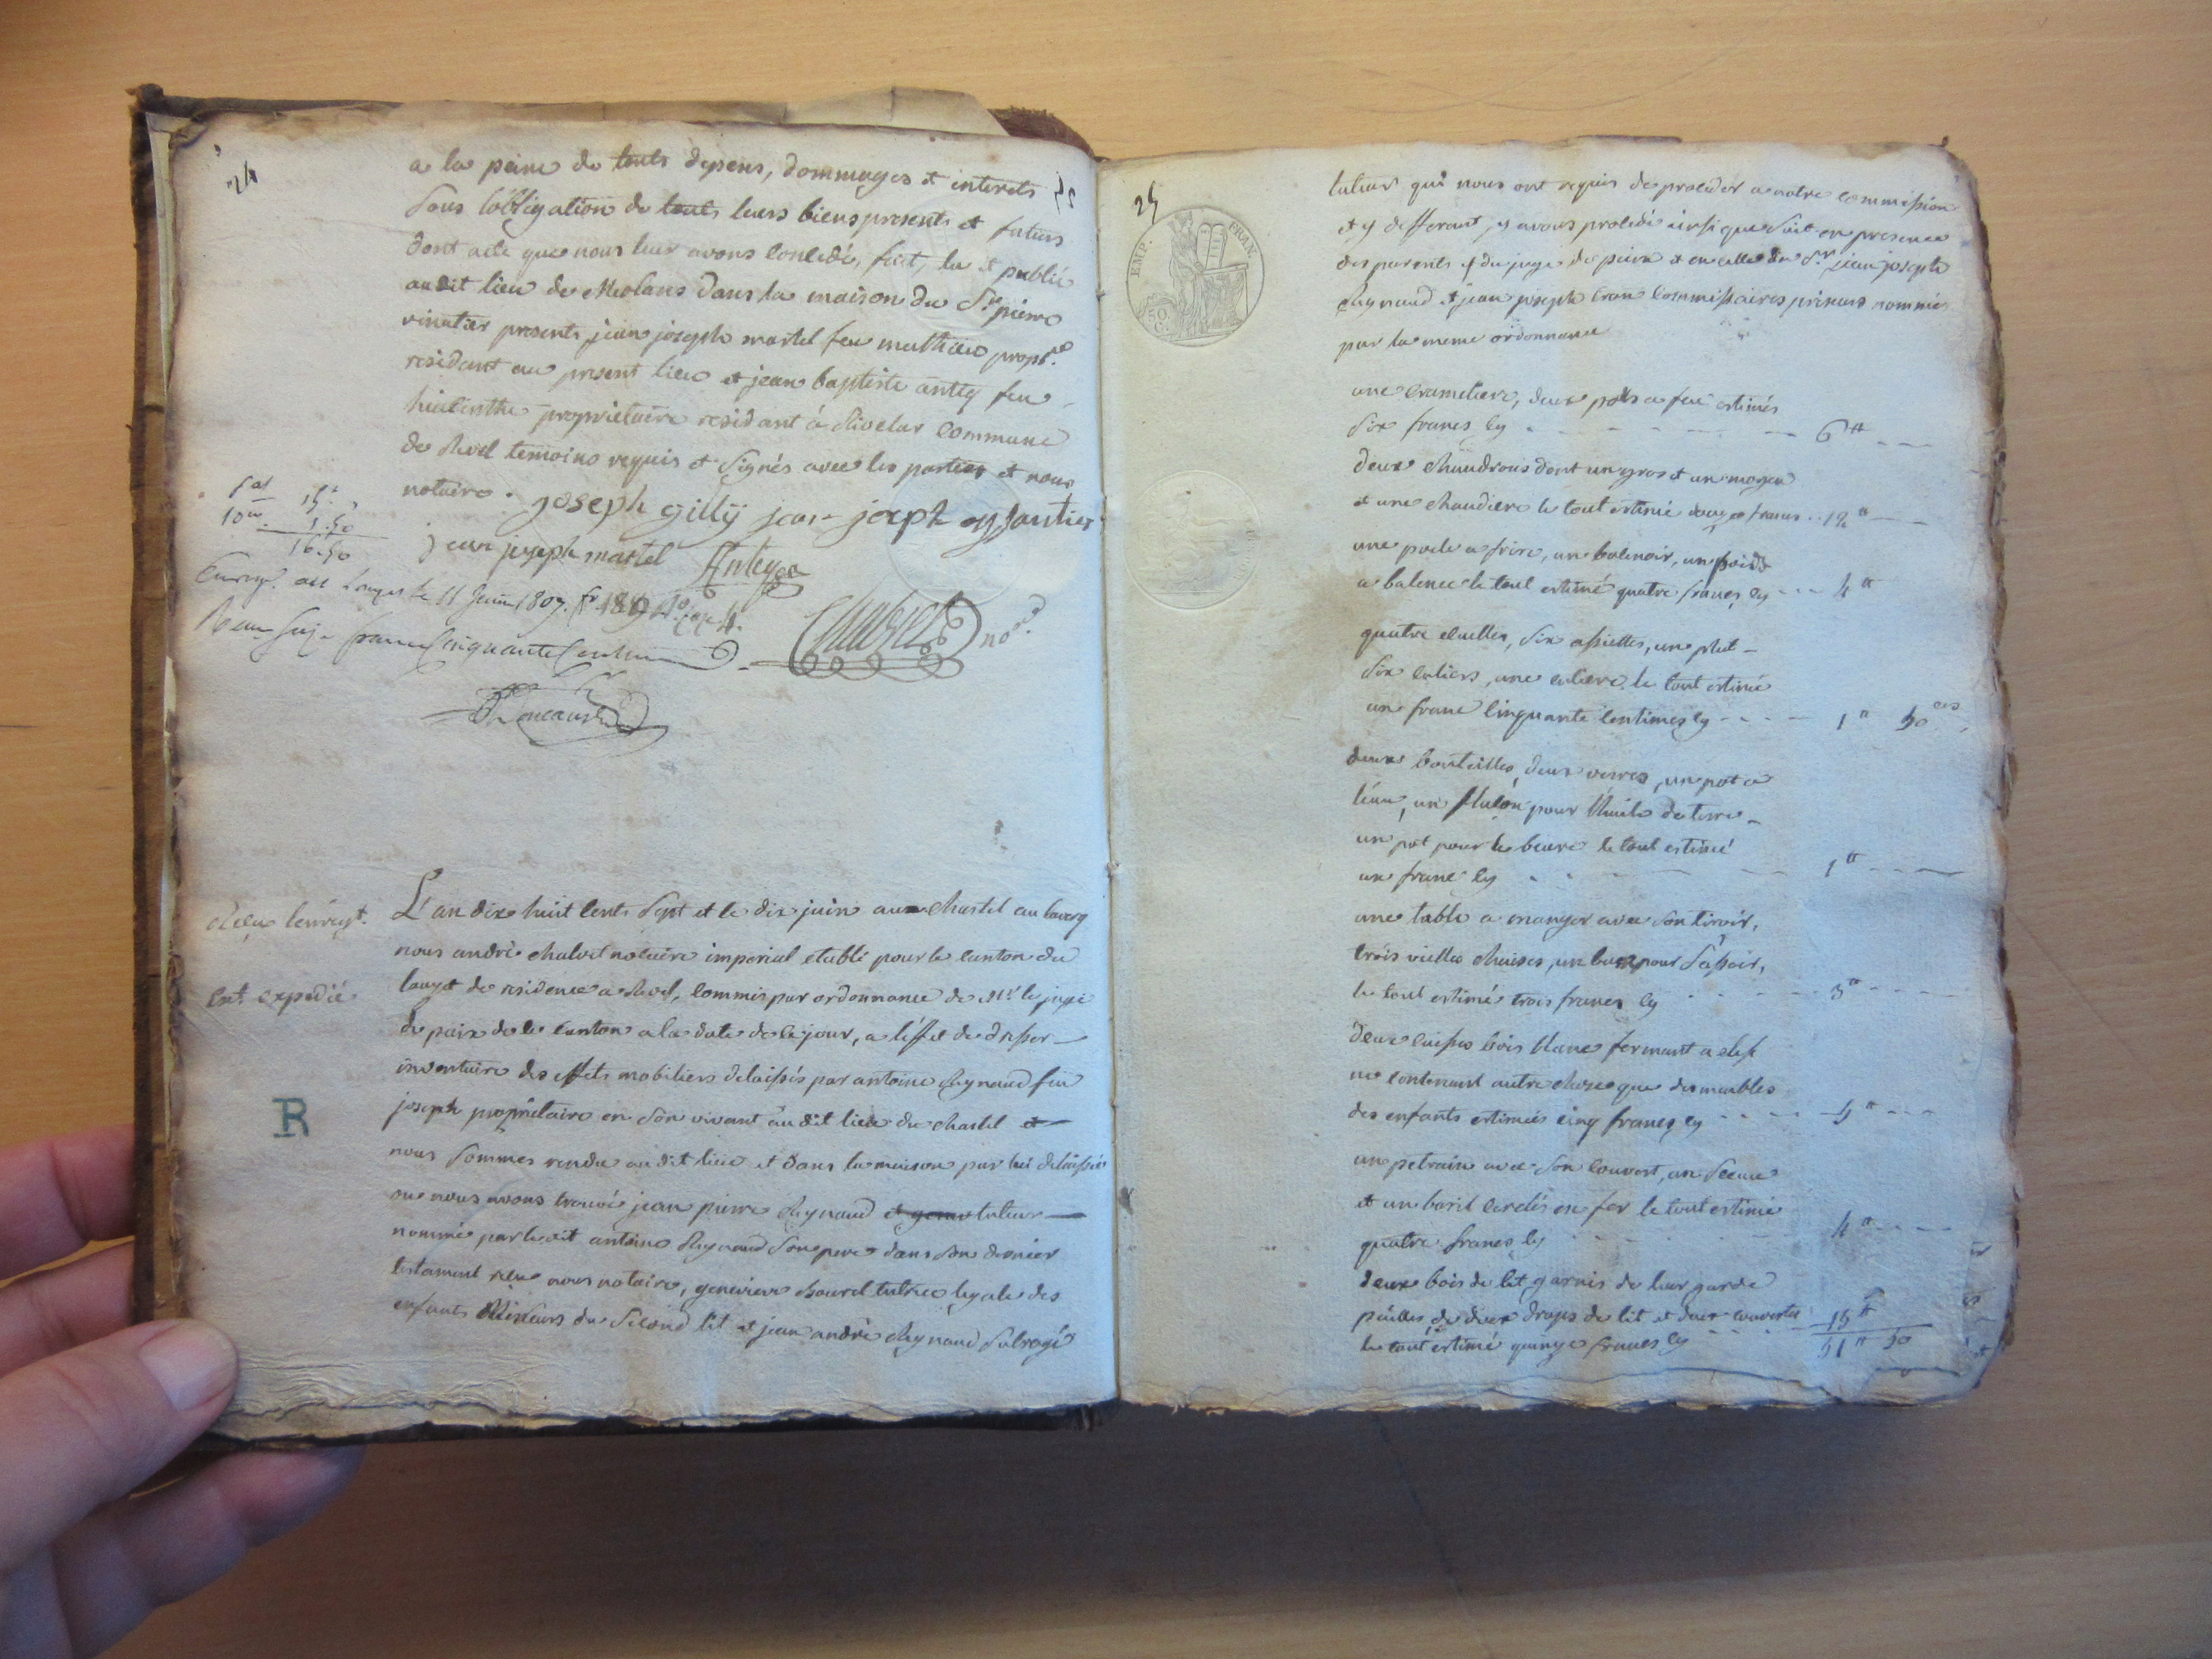 24
a la peine de touts depens, dommages et interets
sous l'obligation de touts leurs biens presents et futurs
dont acte que nous leur avons concedé, fait, lu et publié
audit lieu de Meolans dans la maison du Sr pierre
vinatier presents jean joseph martel feu mathieu propre
residant au present lieu et jean baptiste antiq feu
hiacinthe proprietaire residant á Rioclar commune
de Revel temoins requis et signés avec les parties et nous
notaire. joseph gilly jean joseph
jean joseph martel
15.
10me 1.50
16.50
Enregé. au Lauzet le 11 Juin 1807.
Reçu seize francs cinquante centimes
not
Reçu l'enregt.
Ext. expedié
R
L'an dix huit cents sept et le dix juin au chastel au laverq
nous andré chabert notaire imperial etabli pour le canton du
lauzet de residence a Revel, commis par ordonnance de Mr. le juge
de paix de ce canton a la date de ce jour, a l'effet de dresser
inventaire des effets mobiliers delaissés par antoine Reynaud feu
joseph proprietaire en son vivant audit lieu du chastel et
nous sommes rendu audit lieu et dans la maison par lui delaissée
ou nous avons trouvé jean pierre Reynaud tuteur
nommé par ledit antoine Reynaud son pere dans son dernier
testament nous notaire, genevieve tutrice legale des
enfants Mineurs du second lit et jean andré Reynaud subrogé
25
EMP. FRAN.
50 C.
tuteur qui nous ont requis de proceder a notre commission
et y defferant, y avons procedé ainsi que suit en presence
des parents et du juge de paix et en celle du Sr. jean joseph
Reynaud et jean joseph commissaires priseurs nommés
par la meme ordonnance
une cramaliere, deux pots a feu estimés
six francs cy 6tt
deux chaudrons dont un gros et un moyen
et une chaudiere le tout estimé douze francs 12tt
une poele a frire, un un poids
a balence le tout estimé quatre francs cy 4tt
quatre ecuelles, six assiettes, un plat
six culiers, une culiere le tout estimé
un franc cinquante centimes cy 1tt 50
deux bouteilles, deux verres, un pot a
l'eau, un pour l'huile de terre
un pot pour le beure le tout estimé
un franc cy 1tt
une table a manger avec son tiroir,
trois vielles chaises, un banc pour s'assoir,
le tout estimé trois francs cy 3tt
deux caisses bois blanc fermant a clef
ne contenant autre chose que des meubles
des enfants estimées cinq francs cy 5tt
un petrain avec son couvert, un seau
et un baril cerclés en fer le tout estimé
quatre francs cy 4tt
deux bois de lit garnis de leur garde
pailles, de deux draps de lit et deux couvertes
le tout estimé quinze francs cy 15tt
51tt 50